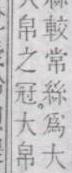 較常絲為大
大帛之冠。大帛